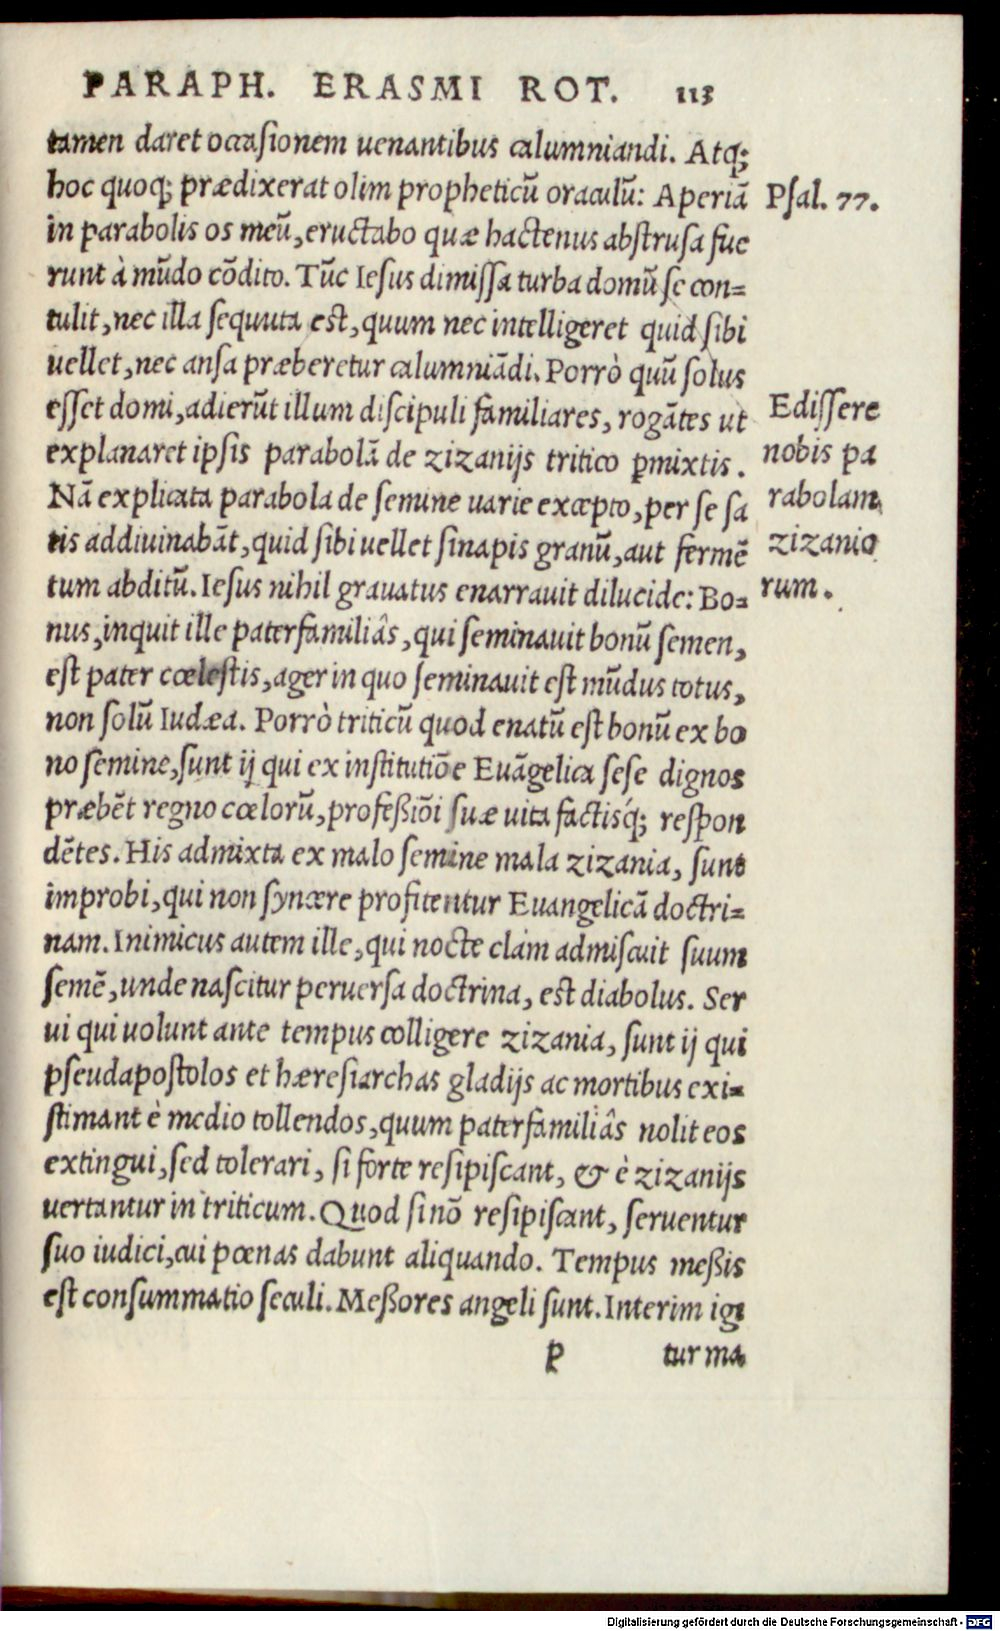 PARAPH. ERASMI ROT. 113
tamen daret occasionem uenantibus calumniandi. Atq;
hoc quoq; prædixerat olim propheticũ oraculũ: Aperiã
Psal. 77.
in parabolis os meũ, eructabo quæ hactenus abstrusa fue
runt à mũdo cõdito. Tũc Iesus dimissa turba domũ se con=
tulit, nec illa sequuta est, quum nec intelligeret quid sibi
uellet, nec ansa præberetur calumniãdi. Porrò quũ solus
esset domi, adierũt illum discipuli familiares, rogãtes ut
explanaret ipsis parabolã de zizanijs tritico ꝑmixtis.
Edissere
nobis pa
rabolam
zizanio
rum.
Nã explicata parabola de semine uarie excepto, per se sa
tis addiuinabãt, quid sibi uellet sinapis granũ, aut fermẽ
tum abditũ. Iesus nihil grauatus enarrauit dilucide: Bo=
nus, inquit ille paterfamiliâs, qui seminauit bonũ semen,
est pater cœlestis, ager in quo seminauit est mũdus totus,
non solũ Iudæa. Porrò triticũ quod enatũ est bonũ ex bo
no semine, sunt ij qui ex institutiõe Euãgelica sese dignos
præbẽt regno cœlorũ, profeßiõi suæ uita factisq́; respon
dẽtes. His admixta ex malo semine mala zizania, sunt
improbi, qui non syncere profitentur Euangelicã doctri=
nam. Inimicus autem ille, qui nocte clam admiscuit suum
semẽ, unde nascitur peruersa doctrina, est diabolus. Ser
ui qui uolunt ante tempus colligere zizania, sunt ij qui
pseudapostolos et hæresiarchas gladijs ac mortibus exi=
stimant è medio tollendos, quum paterfamiliâs nolit eos
extingui, sed tolerari, si forte resipiscant, & è zizanijs
uertantur in triticum. Quod si nõ resipiscant, seruentur
suo iudici, cui pœnas dabunt aliquando. Tempus meßis
est consummatio seculi. Meßores angeli sunt. Interim igi
P tur ma
Digitalisierung gefördert durch die Deutsche Forschungsgemeinschaft - DFG